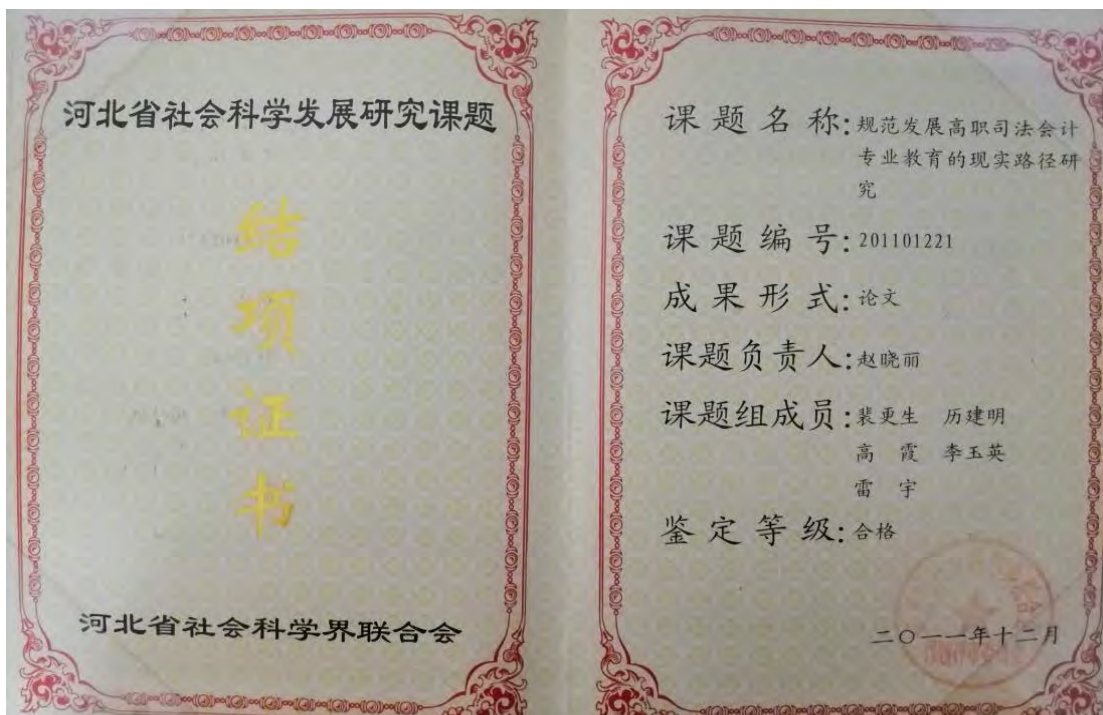 河北省社会科学发展研究课题
结项证书
河北省社会科学界联合会
课题名称:规范发展高职司法会计
专业教育的现实路径研
究
课题编号:201101221
成果形式:论文
课题负责人:赵晓丽
课题组成员:裴更生 历建明
高 霞 李玉英
雷 宇
鉴定等级:合格
二〇一一年十二月